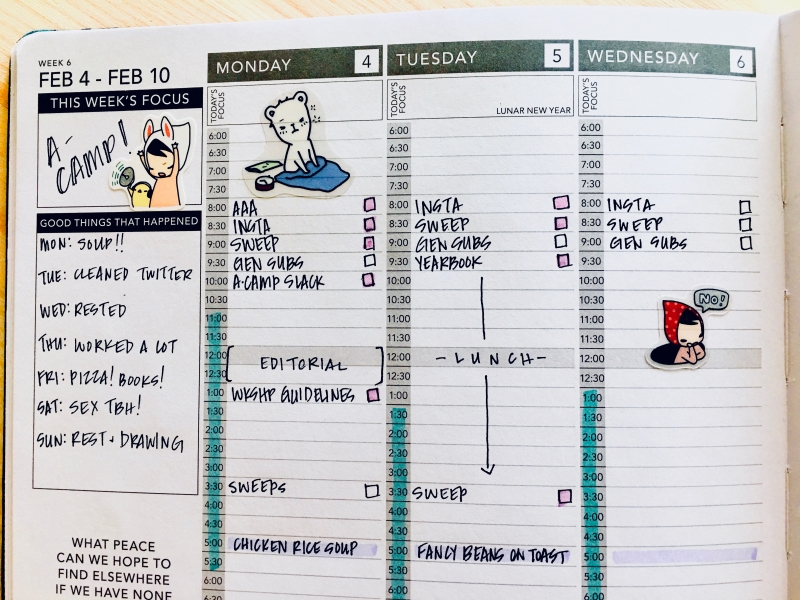 WEEK 6
FEB 4 - FEB 10
THIS WEEK'S FOCUS
A-
CAMP!
GOOD THINGS THAT HAPPENED
MON: SOUP!!
TUE: CLEANED TWITTER
WED: RESTED
THU: WORKED A LOT
FRI: PIZZA! BOOKS!
SAT: SEX TBH!
SUN: REST + DRAWING
WHAT PEACE
CAN WE HOPE TO
FIND ELSEWHERE
IF WE HAVE NONE
MONDAY 4
TODAY'S
FOCUS
6:00
6:30
7:00
7:30
8:00 AAA
8:30 INSTA
9:00 SWEEP
9:30 GEN SUBS
10:00 A-CAMP SLACK
10:30
11:00
11:30
12:00 EDITORIAL
12:30
1:00 WKSHP GUIDELINES
1:30
2:00
2:30
3:00
3:30 SWEEPS
4:00
4:30
5:00 CHICKEN RICE SOUP
5:30
6:00
6:30
TUESDAY 5
TODAY'S
FOCUS
LUNAR NEW YEAR
6:00
6:30
7:00
7:30
8:00 INSTA
8:30 SWEEP
9:00 GEN SUBS
9:30 YEARBOOK
10:00
10:30
11:00
11:30
12:00 - LUNCH -
12:30
1:00
1:30
2:00
2:30
3:00
3:30 SWEEP
4:00
4:30
5:00 FANCY BEANS ON TOAST
5:30
6:00
6:30
WEDNESDAY 6
TODAY'S
FOCUS
6:00
6:30
7:00
7:30
8:00 INSTA
8:30 SWEEP
9:00 GEN SUBS
9:30
10:00
10:30
NO!
11:00
11:30
12:00
12:30
1:00
1:30
2:00
2:30
3:00
3:30
4:00
4:30
5:00
5:30
6:00